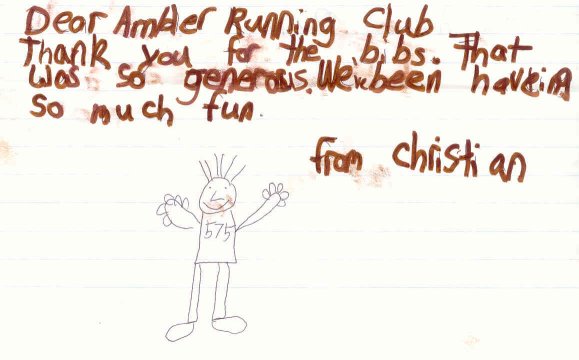 Dear Ambler Running Club
Thank you for the bibs. That
was so generous. We'v been haveing
so much fun.
from christian
575